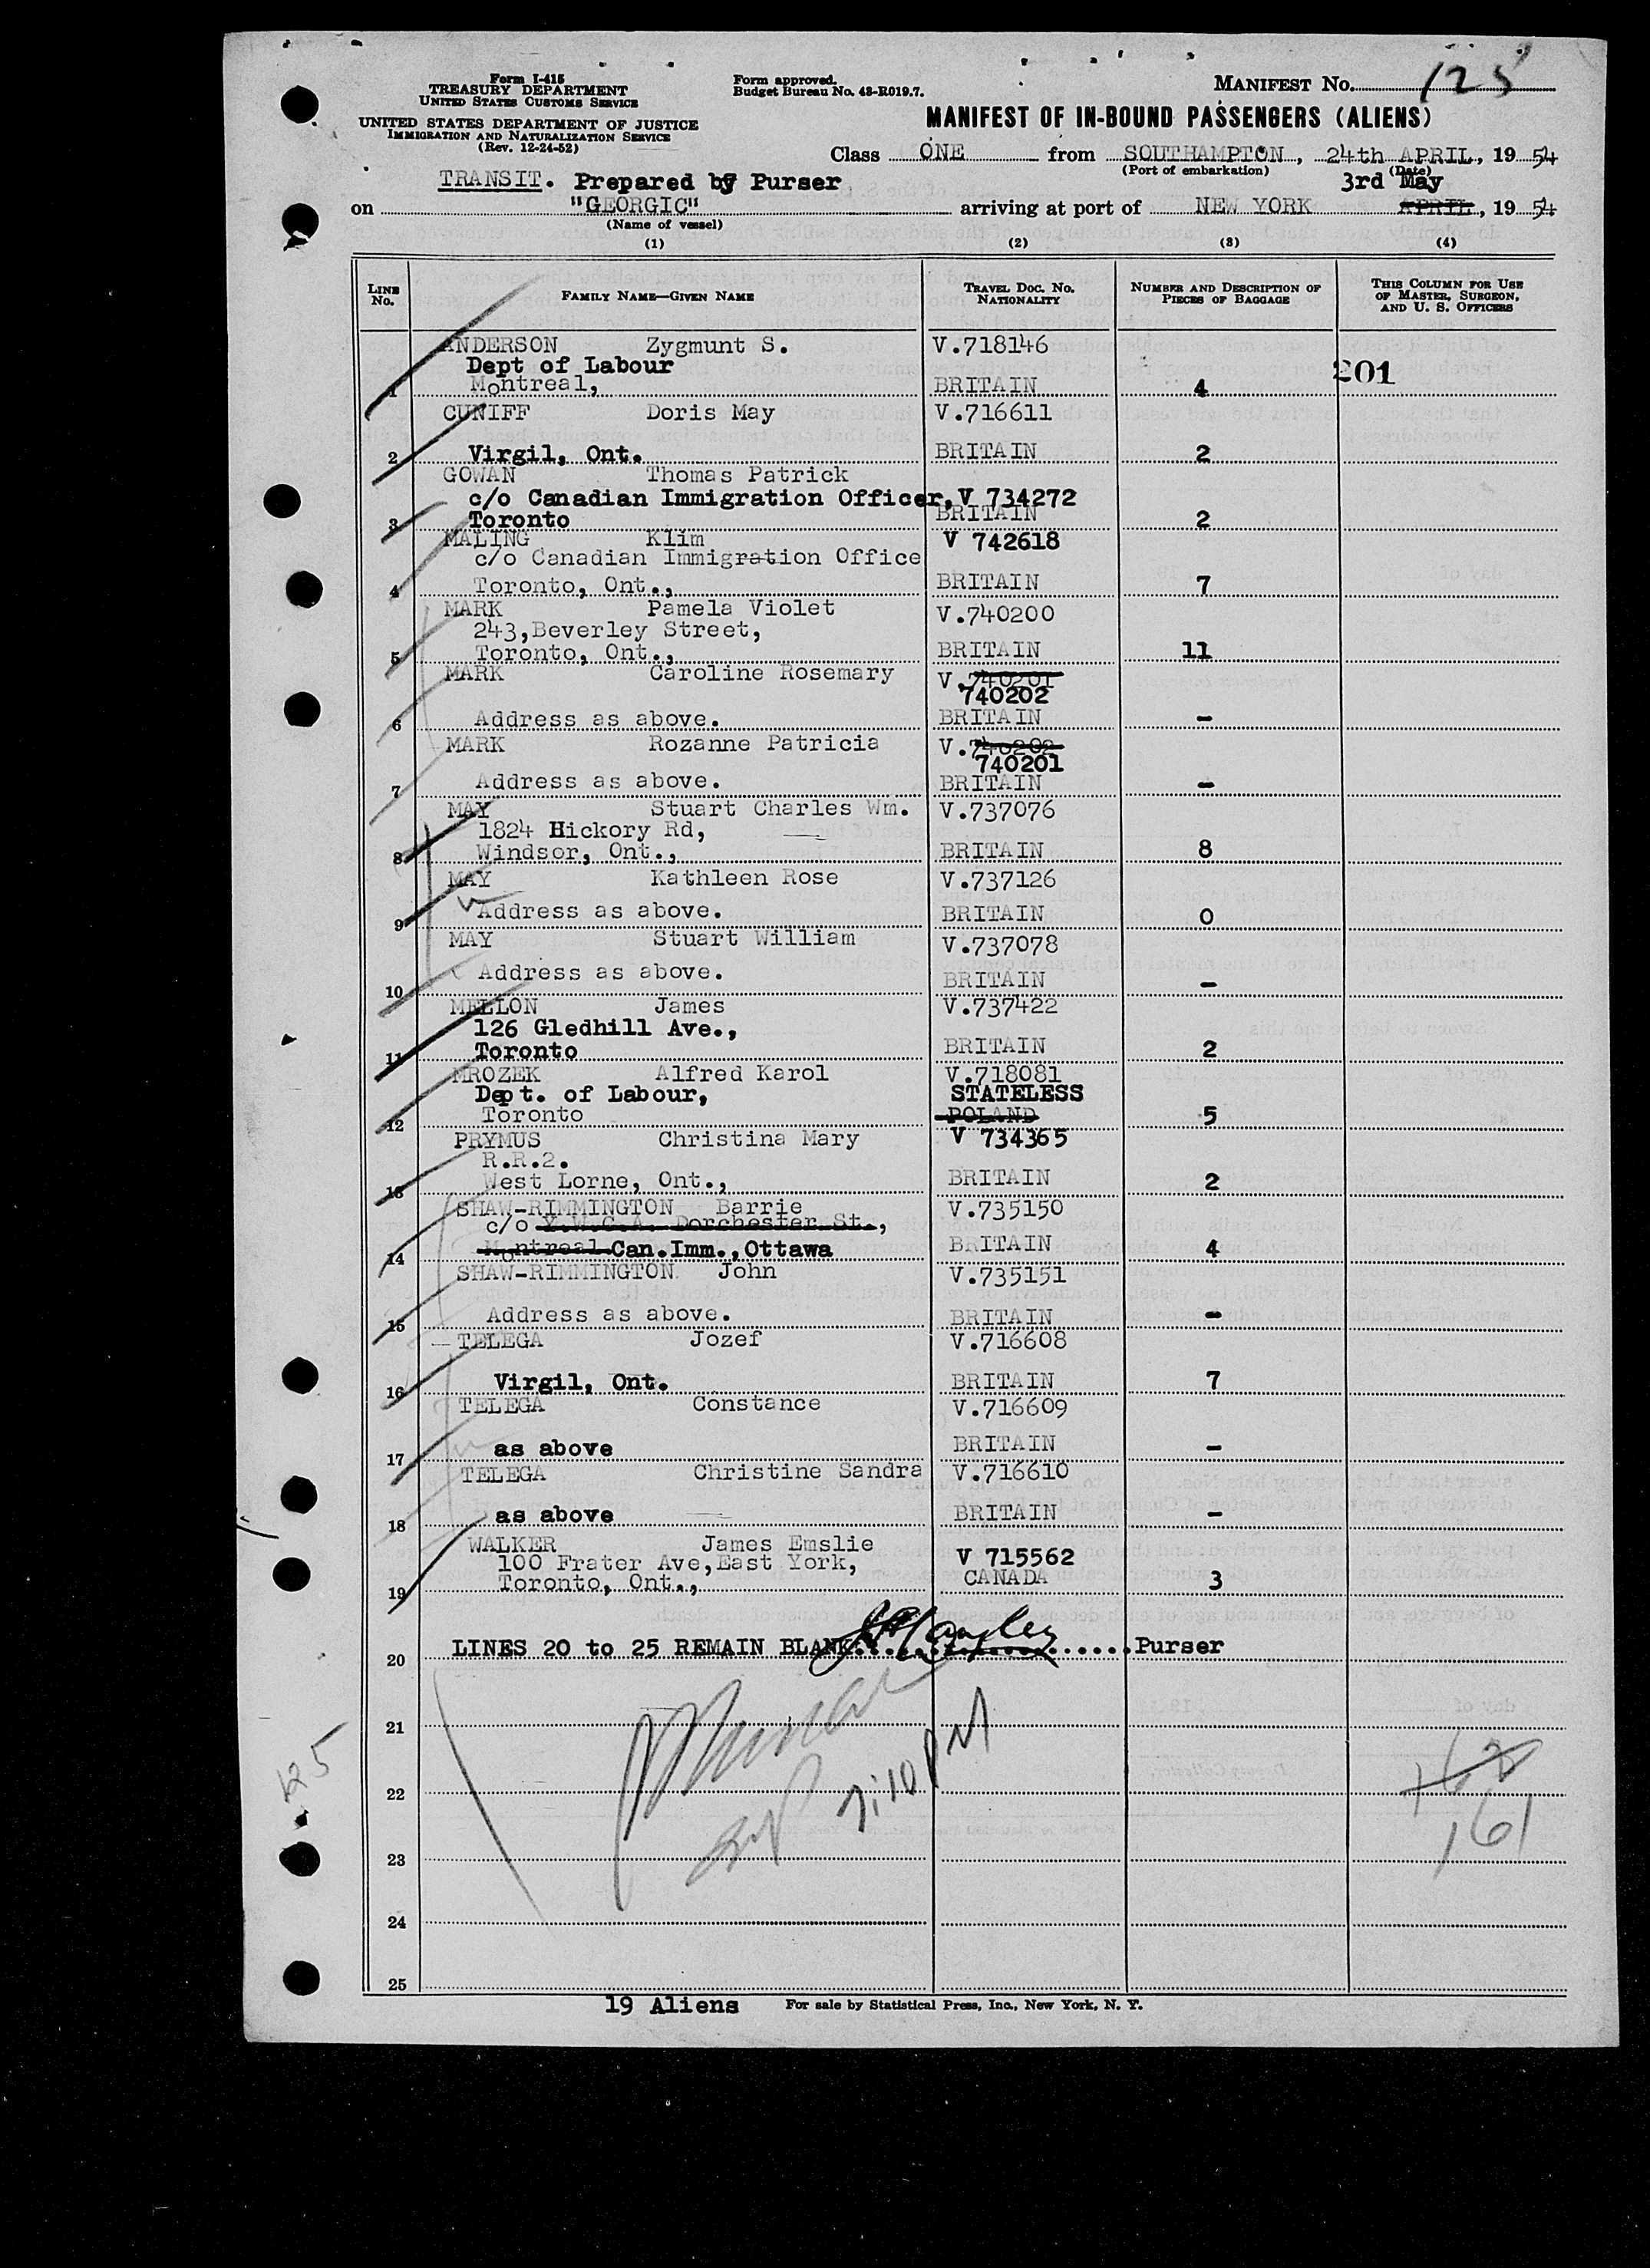 Form I-415
TREASURY DEPARTMENT
UNITED STATES CUSTOMS SERVICE
UNITED STATES DEPARTMENT OF JUSTICE
IMMIGRATION AND NATURALIZATION SERVICE
(Rev. 12-24-52)
Form approved.
Budget Bureau No. 43-R019.7.
MANIFEST No. 125
MANIFEST OF IN-BOUND PASSENGERS (ALIENS)
Class ONE from SOUTHAMPTON, 24th APRIL, 19 54
(Port of embarkation) (Date)
TRANSIT. Prepared by Purser
3rd May
on "GEORGIC" arriving at port of NEW YORK APRIL, 19 54
(Name of vessel)
(1) (2) (3) (4)
LINE No. FAMILY NAME—GIVEN NAME TRAVEL DOC. NO. NATIONALITY NUMBER AND DESCRIPTION OF PIECES OF BAGGAGE THIS COLUMN FOR USE OF MASTER, SURGEON, AND U. S. OFFICERS
ANDERSON Zygmunt S. V.718146
Dept of Labour 201
1 Montreal, BRITAIN 4
CUNIFF Doris May V.716611
2 Virgil, Ont. BRITAIN 2
GOWAN Thomas Patrick
c/o Canadian Immigration Officer, V 734272
3 Toronto BRITAIN 2
MALING Klim V 742618
c/o Canadian Immigration Office
4 Toronto, Ont., BRITAIN 7
MARK Pamela Violet V.740200
243, Beverley Street,
5 Toronto, Ont., BRITAIN 11
MARK Caroline Rosemary V.740201
740202
6 Address as above. BRITAIN -
MARK Rozanne Patricia V.740202
740201
7 Address as above. BRITAIN -
MAY Stuart Charles Wm. V.737076
1824 Hickory Rd,
8 Windsor, Ont., BRITAIN 8
MAY Kathleen Rose V.737126
9 Address as above. BRITAIN 0
MAY Stuart William V.737078
10 Address as above. BRITAIN -
MELLON James V.737422
126 Gledhill Ave.,
11 Toronto BRITAIN 2
MROZEK Alfred Karol V.718081
Dept. of Labour, STATELESS
12 Toronto POLAND 5
PRYMUS Christina Mary V 734365
R.R.2.
13 West Lorne, Ont., BRITAIN 2
SHAW-RIMMINGTON Barrie V.735150
c/o Y.W.C.A. Dorchester St.,
14 Montreal Can.Imm., Ottawa BRITAIN 4
SHAW-RIMMINGTON John V.735151
15 Address as above. BRITAIN -
TELEGA Jozef V.716608
16 Virgil, Ont. BRITAIN 7
TELEGA Constance V.716609
17 as above BRITAIN -
TELEGA Christine Sandra V.716610
18 as above BRITAIN -
WALKER James Emslie V 715562
100 Frater Ave, East York,
19 Toronto, Ont., CANADA 3
20 LINES 20 to 25 REMAIN BLANK Purser
21
22 7:10 PM
125
161
23
24
25
19 Aliens For sale by Statistical Press, Inc., New York, N. Y.